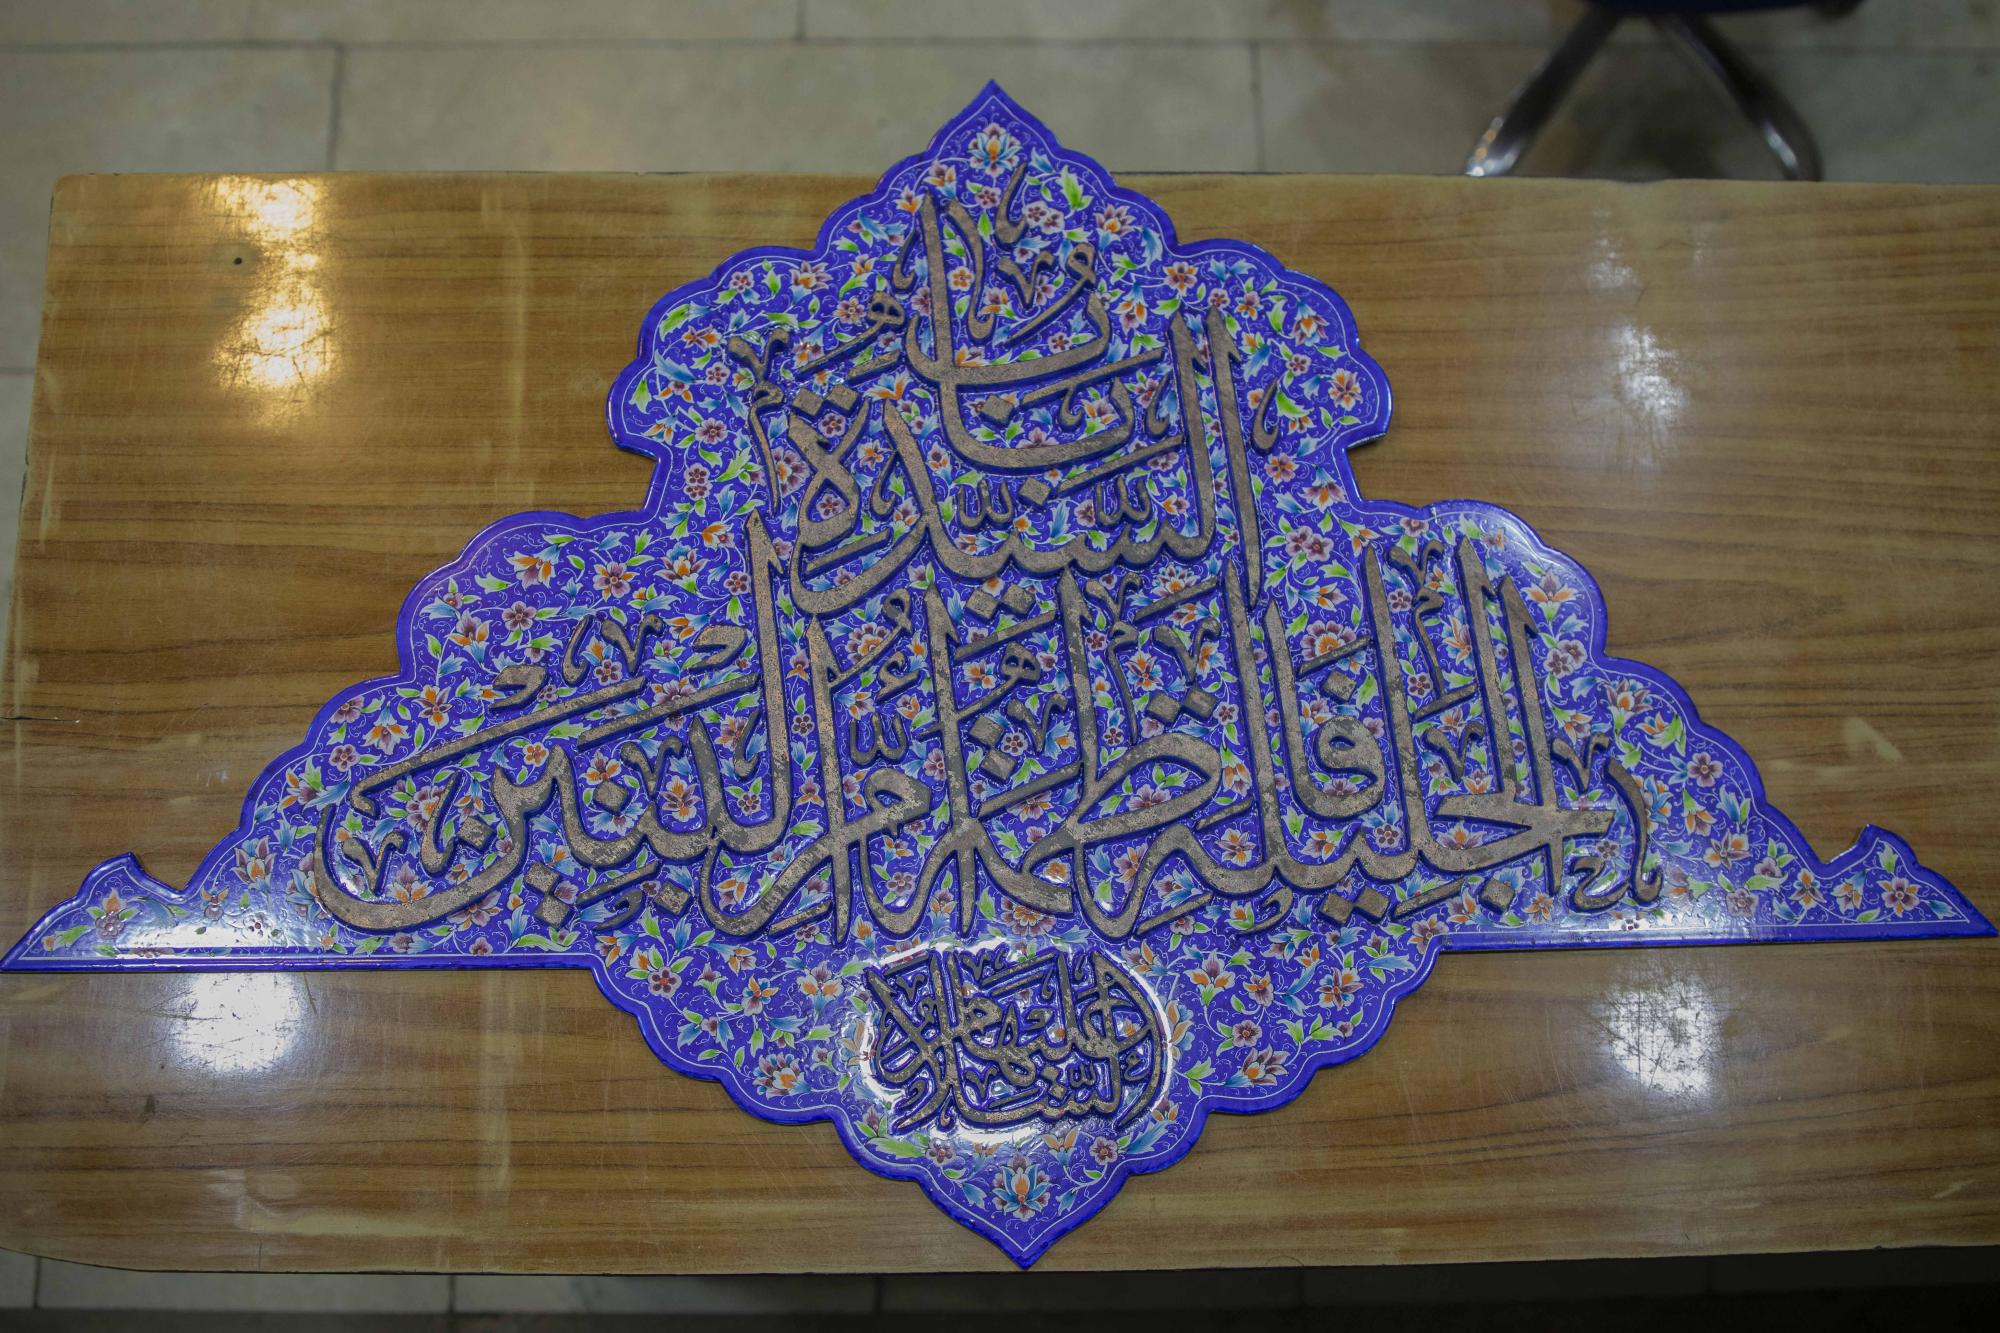 باب
السيدة
الجليلة فاطمة أم البنين
عليها السلام